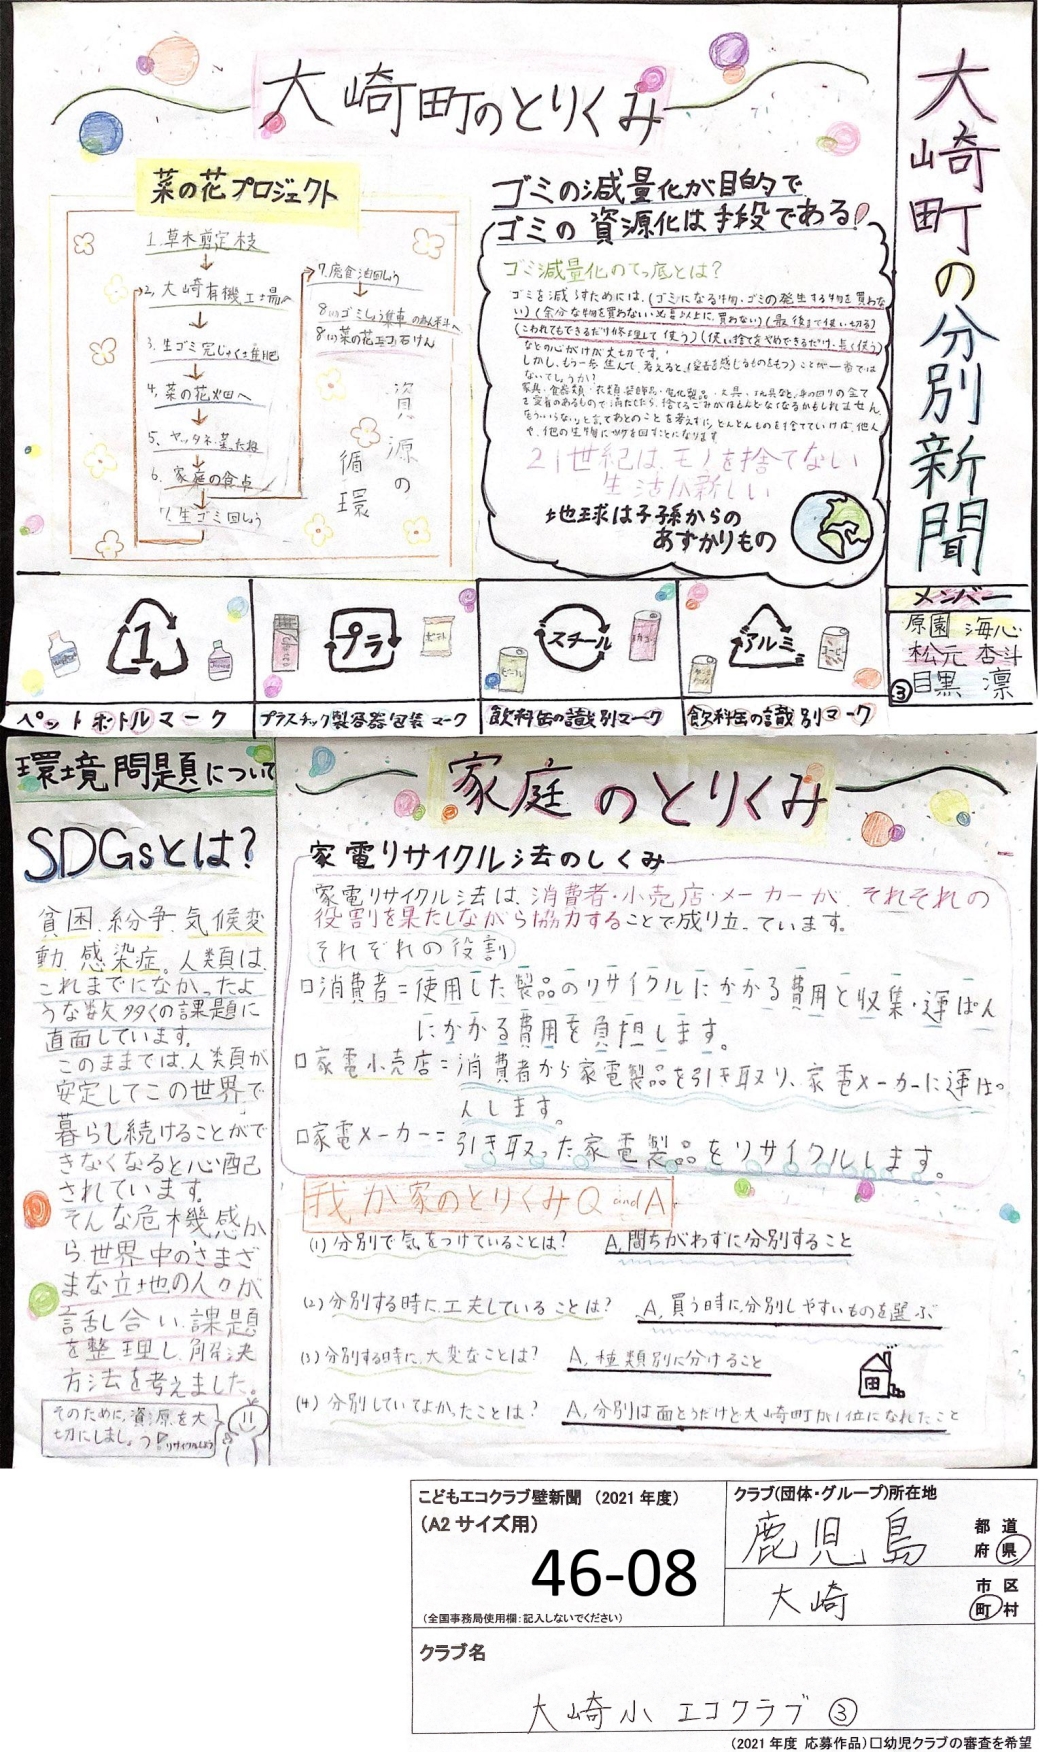 大崎町の分別新聞
大崎町のとりくみ
菜の花プロジェクト
1.草木剪定枝
2.大崎有機工場へ
3.生ゴミ完じゅくたい肥
4.菜の花畑へ
5.ヤッタネ!菜ったね
6.家庭の食卓
7.生ゴミ回しゅう
7.廃食油回しゅう
8.(1)ゴミしゅう集車のねん料へ
8.(2)菜の花エコ石けん
資源の
循環
ゴミの減量化が目的で
ゴミの資源化は手段である!
ゴミ減量化のてっ底とは?
ゴミを減らすためには、(ゴミになる物・ゴミの発生する物を買わな
い)(余分な物を買わない・必要以上に買わない)(最後まで使い切る)
(こわれてもできるだけ修理して使う)(使い捨てをやめできるだけ長く使う)
などの心がけが大切です。
しかし、もう一歩進んで、考えると、(愛着を感じるものをもつ)ことが一番では
ないでしょうか?
や、他の生物にツケを回すことになります
21世紀は、モノを捨てない
生活が新しい
地球は子孫からの
あずかりもの
メンバー
原園 海心
松元 杏斗
目黒 凛
③
1
ペットボトルマーク
プラ
プラスチック製容器包装マーク
スチール
飲料缶の識別マーク
アルミ
飲料缶の識別マーク
環境問題について
SDGsとは?
貧困、紛争、気候変
動、感染症。人類は、
これまでになかったよ
うな数多くの課題に
直面しています。
このままでは、人類が
安定してこの世界で
暮らし続けることがで
きなくなると心配
されています。
そんな危機感か
ら世界中のさまざ
まな立地の人々が
話し合い、課題
を整理し、解決
方法を考えました。
そのために、資源を大
切にしましょう!リサイクルしよう
家庭のとりくみ
家電リサイクル法のしくみ
家電リサイクル法は、消費者・小売店・メーカーが、それぞれの
役割を果たしながら協力することで成り立っています。
それぞれの役割
□消費者=使用した製品のリサイクルにかかる費用と収集・運ぱん
にかかる費用を負担します。
□家電小売店=消費者から家電製品を引き取り、家電メーカーに運ぱ
んします。
□家電メーカー=引き取った家電製品をリサイクルします。
我が家のとりくみQandA
(1)分別で気をつけていることは? A,間ちがわずに分別すること
(2)分別する時に、工夫していることは? A,買う時に分別しやすいものを選ぶ
(3)分別する時に、大変なことは? A,種類別に分けること
(4)分別していてよかったことは? A,分別は面どうだけど大崎町が1位になれたこと
こどもエコクラブ壁新聞 (2021年度)
(A2サイズ用)
46-08
(全国事務局使用欄:記入しないでください)
クラブ(団体・グループ)所在地
鹿児島 都道府県
大崎 市区町村
クラブ名
大崎小 エコクラブ ③
(2021年度 応募作品)□幼児クラブの審査を希望